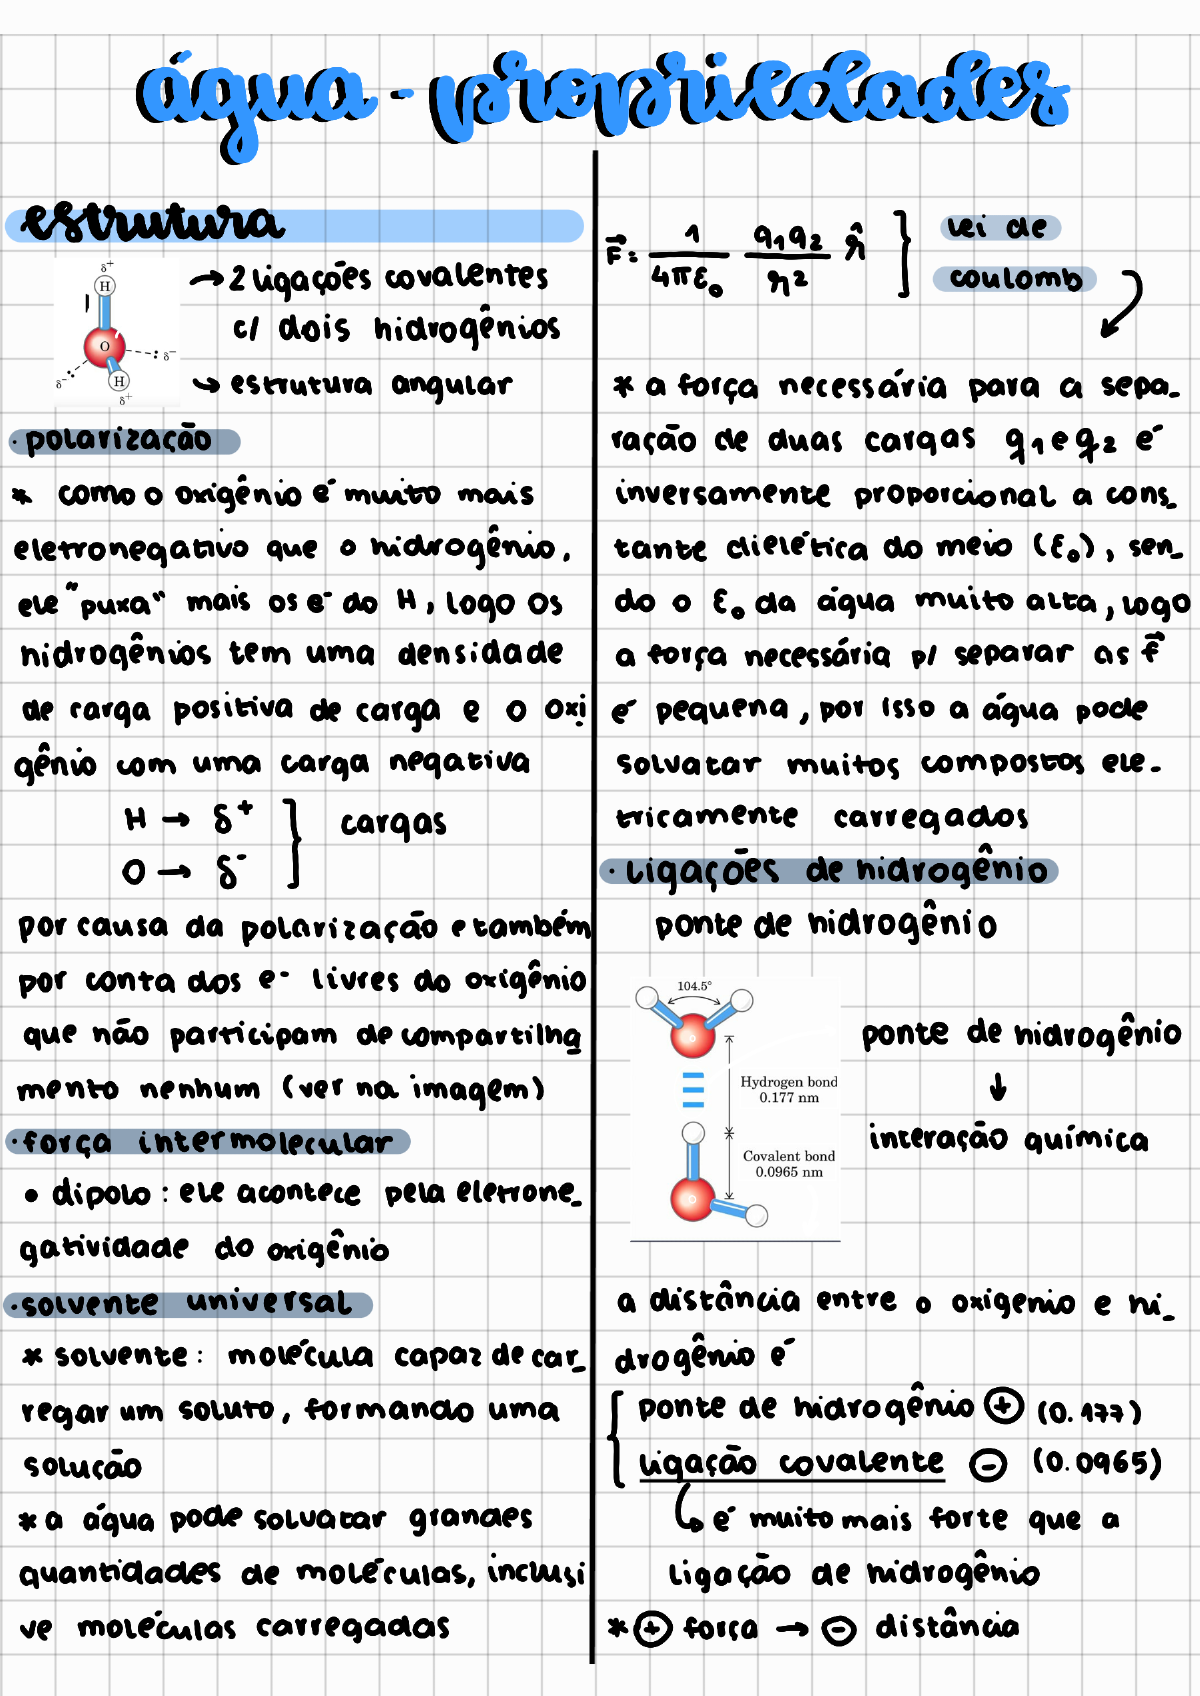 água - propriedades
estrutura
δ+
H
O
H
δ+
δ-
δ-
→ 2 ligações covalentes
c/ dois hidrogênios
↳ estrutura angular
· polarização
* como o oxigênio é muito mais
eletronegativo que o hidrogênio,
ele "puxa" mais os e- do H, logo os
hidrogênios tem uma densidade
de carga positiva de carga e o oxi
gênio com uma carga negativa
H → δ+
O → δ-
} cargas
por causa da polarização e também
por conta dos e- livres do oxigênio
que não participam de compartilha
mento nenhum (ver na imagem)
· força intermolecular
• dipolo: ele acontece pela eletrone_
gatividade do oxigênio
· solvente universal
* solvente: molécula capaz de car_
regar um soluto, formando uma
solução
* a água pode solvatar grandes
quantidades de moléculas, inclusi
ve moléculas carregadas
F⃗ = 1/4πε₀ q₁q₂/r² r̂ }
lei de
coulomb
* a força necessária para a sepa_
ração de duas cargas q₁ e q₂ é
inversamente proporcional a cons_
tante dielétrica do meio (ε₀), sen_
do o ε₀ da água muito alta, logo
a força necessária p/ separar as F⃗
é pequena, por isso a água pode
solvatar muitos compostos ele_
tricamente carregados
· ligações de hidrogênio
ponte de hidrogênio
104.5°
Hydrogen bond
0.177 nm
Covalent bond
0.0965 nm
ponte de hidrogênio
↓
interação química
a distância entre o oxigenio e hi_
drogênio é
{ ponte de hidrogênio ⊕ (0.177)
ligação covalente ⊖ (0.0965)
↳ é muito mais forte que a
ligação de hidrogênio
* ⊕ força → ⊖ distância